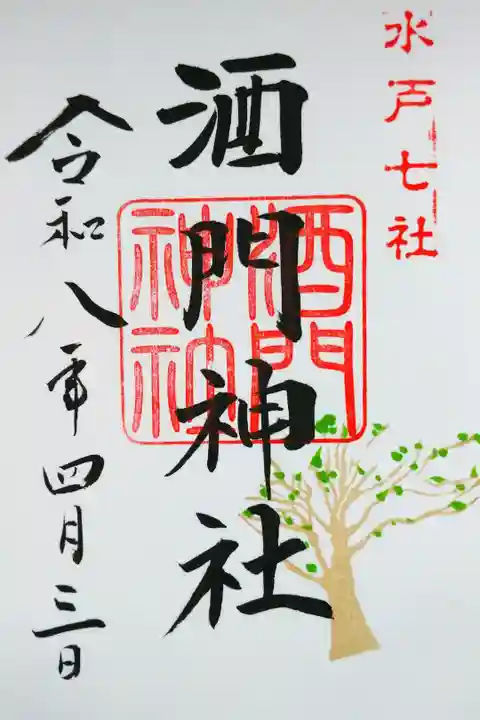 水戸七社
酒門神社
酒門
神社
令和八年四月三日